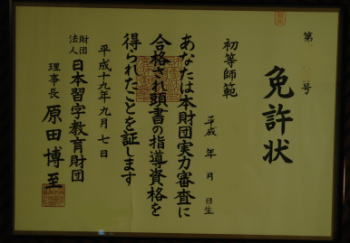 免許状
第 号
初等師範
平成 年 月 日生
あなたは本財団実力審査に
合格され頭書の指導資格を
得られたことを証します
平成十九年九月七日
財団法人 日本習字教育財団
理事長 原田博至